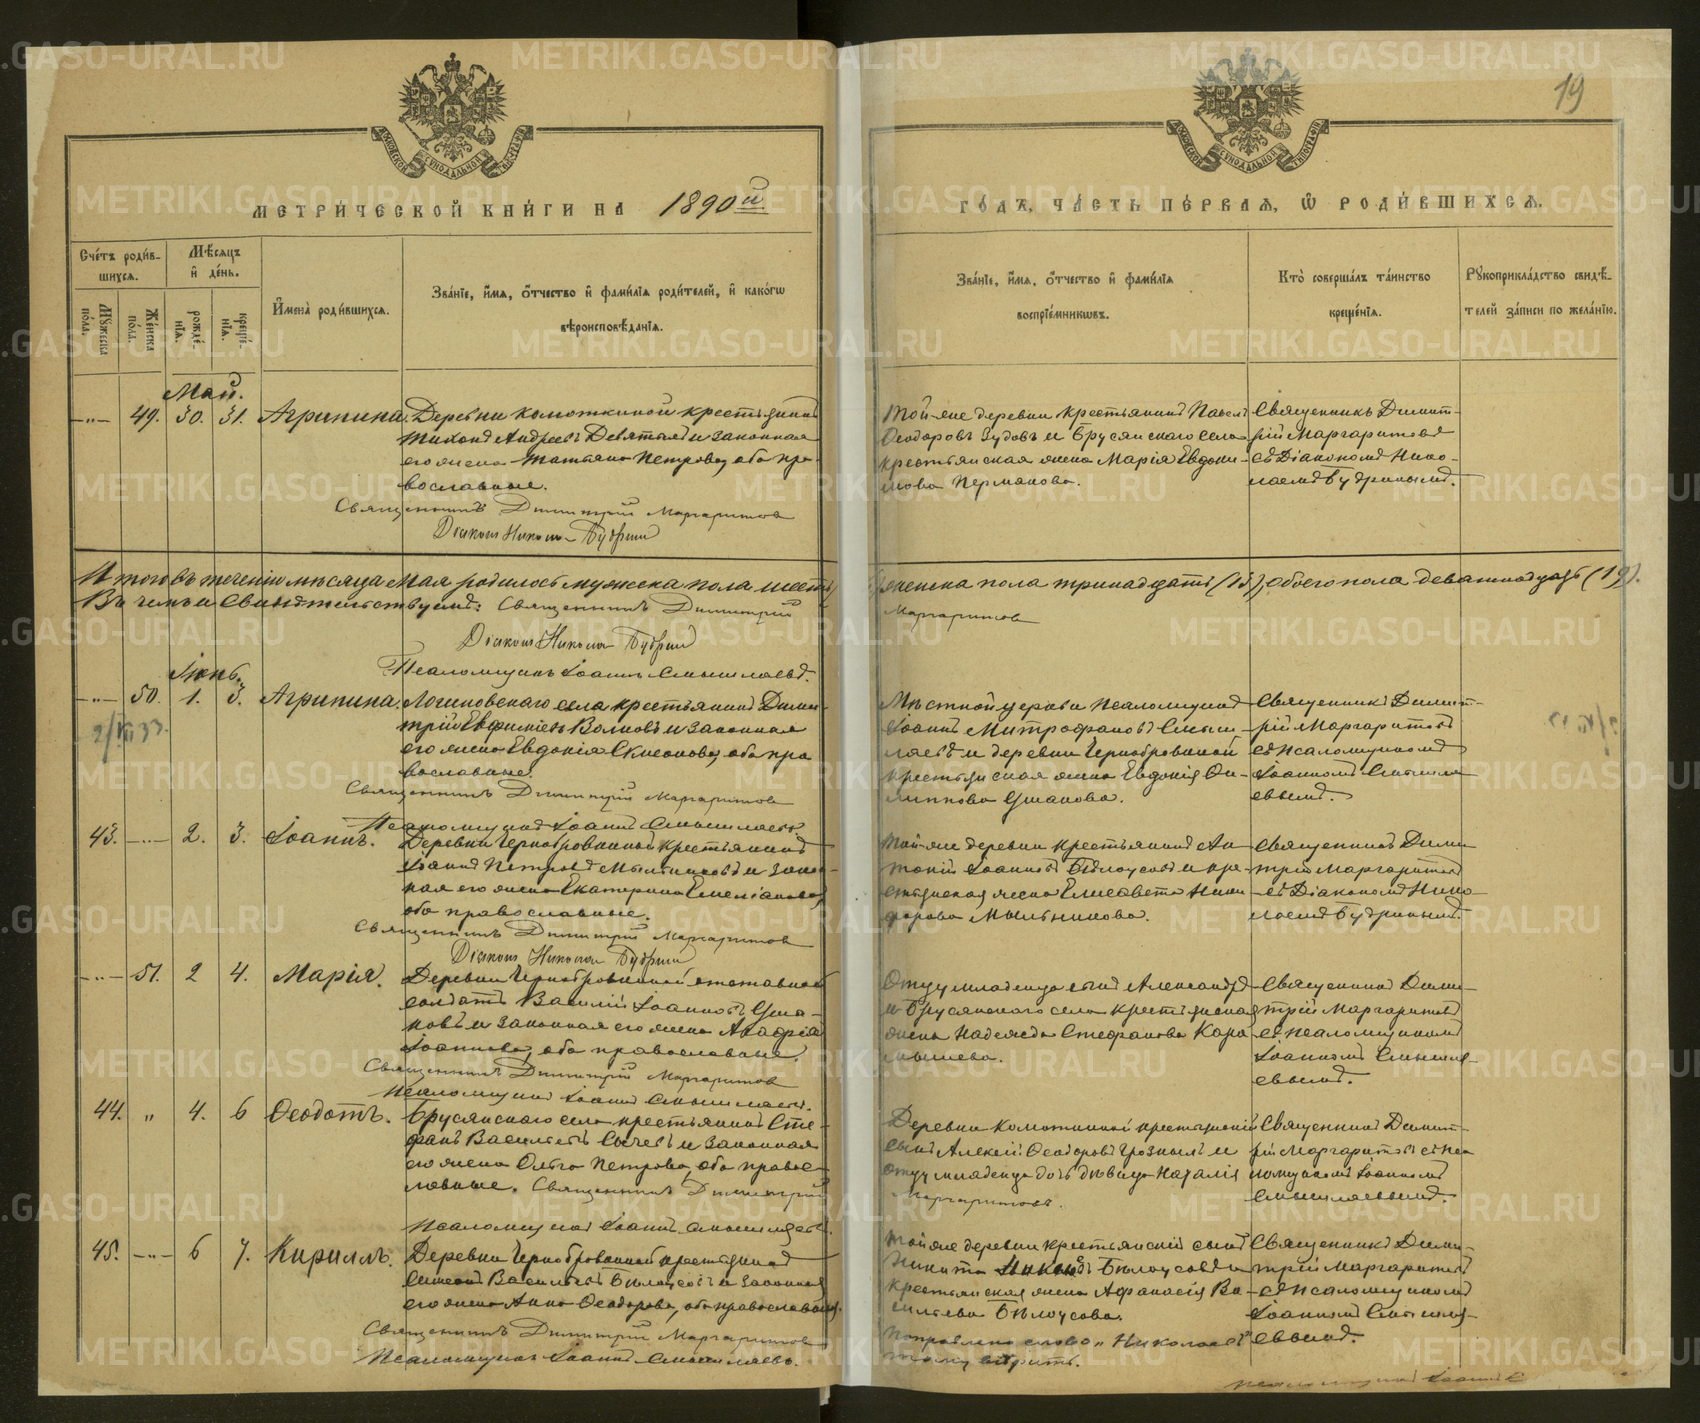 19
МЕТРИ́ЧЕСКОЙ КНИ́ГИ НА 1890й
ГО́ДЪ, ЧА́СТЬ ПЕ́РВАЯ, Ѡ РОДИ́ВШИХСЯ.
Счéтъ роди́в-
шихся.
Мꙋ́жеска пóла.
Жéнска пóла.
Мѣ́сяцъ
и҆ дéнь.
рождé-
нїя.
крещé-
нїя.
И҆менà роди́вшихся.
Звáнїе, и҆́мя, ѻ҆́тчество и҆ фами́лїя роди́телей, и҆ какóгѡ
вѣроисповѣ́данїя.
Звáнїе, и҆́мя, ѻ҆́тчество и҆ фами́лїя
воспрїéмникѡвъ.
Ктò совершáлъ тáинство
крещéнїя.
Рꙋкоприклáдство свидѣ́-
телей зáписи по желáнїю.
Май.
49. 30. 31. Агрипина.
Деревни Комоткиной крестьянинъ
Тихонъ Андреевъ Девятыхъ и законная
его жена Татьяна Петрова, оба пра-
вославные.
Священникъ Димитрій Маргаритовъ
Діаконъ Николай Будринъ
Той-же деревни крестьянинъ Павелъ
Ѳеодоровъ Зудовъ и Брусянскаго села
крестьянская жена Марія Евдоки-
мова Пермякова.
Священникъ Димит-
рій Маргаритовъ
съ Діакономъ Нико-
лаемъ Будринымъ.
Итого въ теченіи мѣсяца Мая родилось мужеска пола шесть
женска пола тринадцать (13), обоего пола девятнадцать (19).
Въ чемъ и свидѣтельствуемъ: Священникъ Димитрій
Маргаритовъ
Діаконъ Николай Будринъ
Псаломщикъ Іоаннъ Смышляевъ.
Іюнь.
50. 1. 3. Агрипина.
Логиновскаго села крестьянинъ Дими-
трій Евфиміевъ Волковъ и законная
его жена Евдокія, оба пра
вославные.
Священникъ Димитрій Маргаритовъ
Псаломщикъ Іоаннъ Смышляевъ.
Мѣстной церкви псаломщикъ
Іоаннъ Митрофановъ Смыш-
ляевъ и деревни Чернобровиной
крестьянская жена Евдокія Фи-
липпова Ушакова.
Священникъ Димит-
рій Маргаритовъ
съ псаломщикомъ
Іоанномъ Смышля
евымъ.
43. 2. 3. Іоаннъ.
Деревни Чернобровиной крестьянинъ
Іоаннъ Петровъ Мыльниковъ и закон-
ная его жена Екатерина Емеліанова,
оба православные.
Священникъ Димитрій Маргаритовъ
Діаконъ Николай Будринъ
Той-же деревни крестьянинъ Ан
тоній Іоанновъ Бѣлоусовъ и кре-
стьянская жена Елисавета Ники
форова Мыльникова.
Священникъ Дими
трій Маргаритовъ
съ Діакономъ Нико-
лаемъ Будринымъ.
51. 2 4. Марія.
Деревни Чернобровиной отставной
солдатъ Василій Іоанновъ Уша-
ковъ и законная его жена Агафія
Іоаннова, оба православные.
Священникъ Димитрій Маргаритовъ
Псаломщикъ Іоаннъ Смышляевъ.
Отцу младенца сынъ Александръ
и Брусянского села крестьянская
жена Надежда Стефанова Кара
мышева.
Священникъ Дими-
трій Маргаритовъ
съ псаломщикомъ
Іоанномъ Смышля-
евымъ.
44. „ 4. 6 Ѳеодотъ.
Брусянскаго села крестьянинъ Сте-
фанъ Васильевъ Сычевъ и законная
его жена Ольга Петрова, оба правос-
лавные. Священникъ Димитрій
Маргаритовъ.
Псаломщикъ Іоаннъ Смышляевъ.
Деревни Комоткиной крестьянскій
сынъ Алексій Ѳеодоровъ Грозныхъ и
отцу младенца дочь дѣвица Наталія
Священникъ Димит-
рій Маргаритовъ съ пса
ломщикомъ Іоанномъ
Смышляевымъ.
45. 6 7. Кириллъ.
Деревни Чернобровиной крестьянинъ
Симеонъ Васильевъ Бѣлоусовъ и законная
его жена Анна Ѳеодорова, оба православные.
Священникъ Димитрій Маргаритовъ
Псаломщикъ Іоаннъ Смышляевъ.
Той-же деревни крестьянскій сынъ
Никита Бѣлоусовъ и
крестьянская жена Афанасія Ва-
сильева Бѣлоусова.
Поправлено слово „Николаевъ"
тому вѣрить.
Священникъ Дими-
трій Маргаритовъ
съ псаломщикомъ
Іоанномъ Смышля-
евымъ.
псаломщикъ Іоаннъ
METRIKI.GASO-URAL.RU